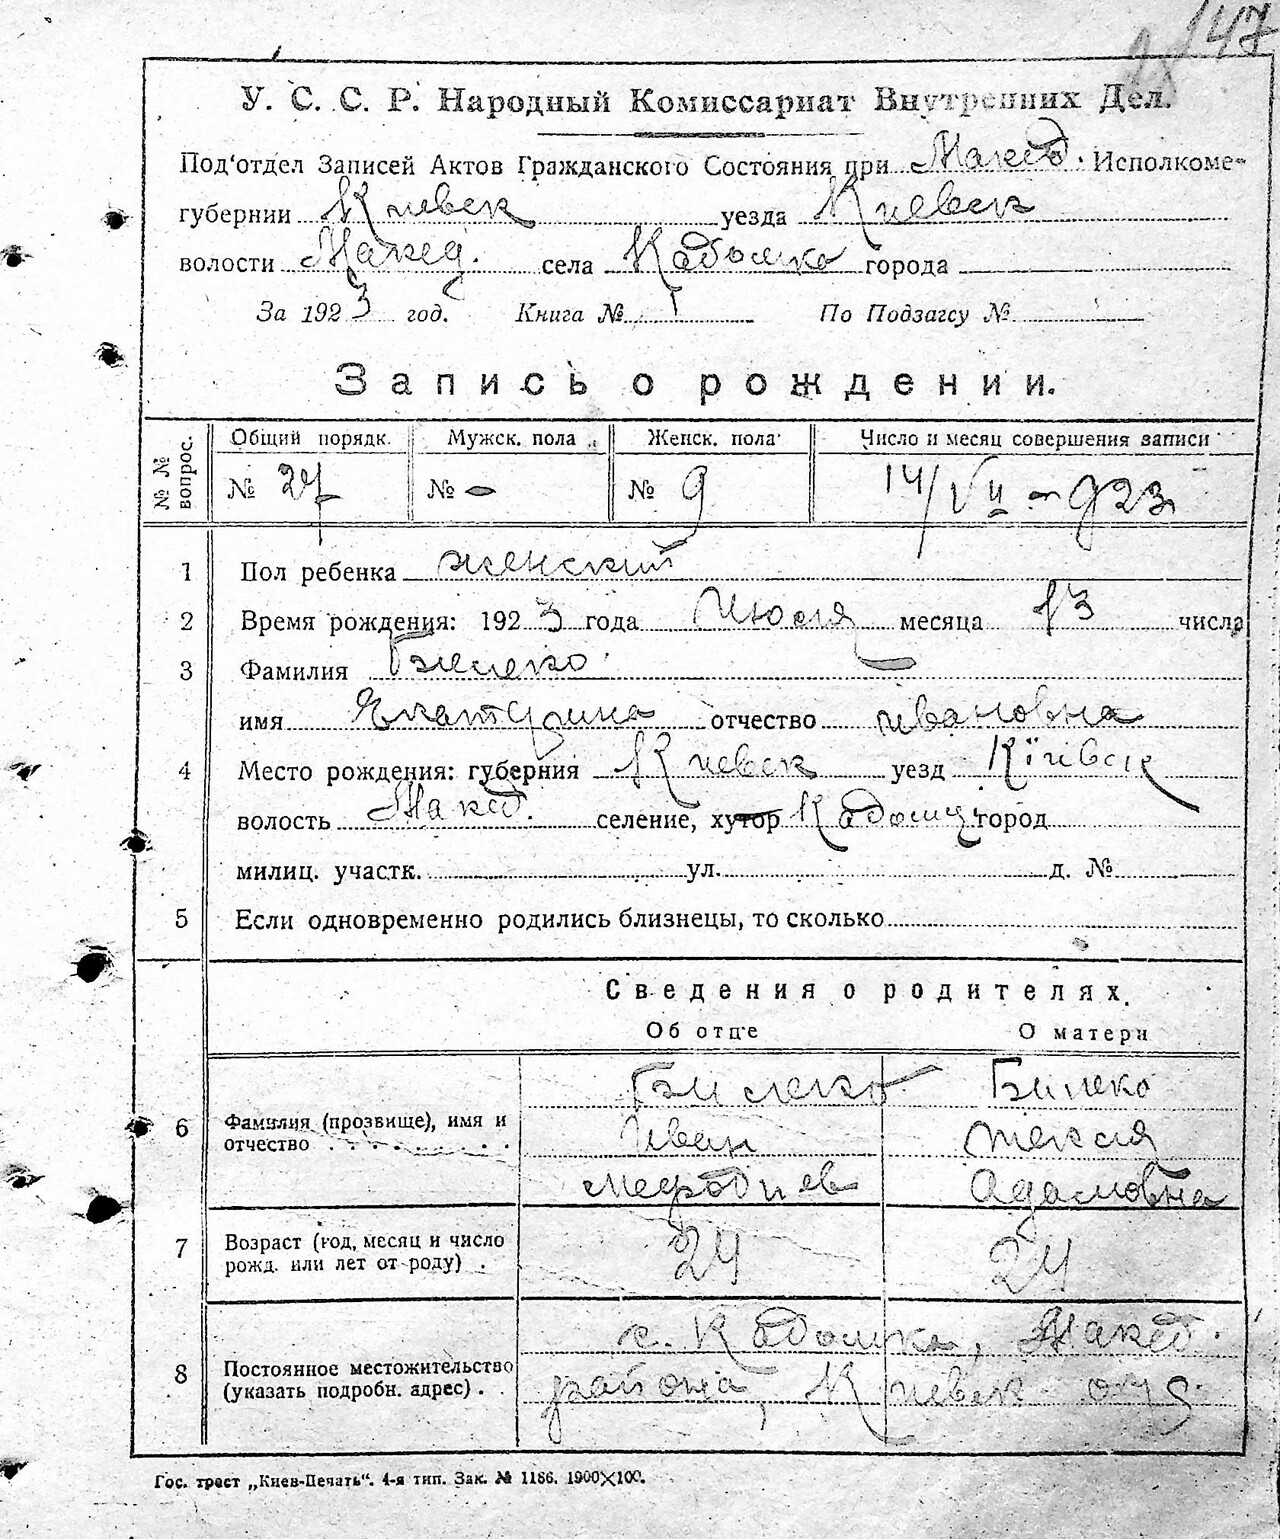 147
У. С. С. Р. Народный Комиссариат Внутренних Дел.
Под'отдел Записей Актов Гражданского Состояния при Макед. Исполкоме-
губернии Киевск уезда Киевск
волости Макед. села Кадомка города
За 1923 год. Книга № 1 По Подзагсу №
Запись о рождении.
№ № вопрос. Общий порядк. Мужск. пола Женск. пола Число и месяц совершения записи
№ 27 № - № 9 14/VII - 923
1 Пол ребенка женский
2 Время рождения: 1923 года Июля месяца 13 числа
3 Фамилия Билеко
имя Екатерина отчество Ивановна
4 Место рождения: губерния Киевск уезд Кіевск
волость Макед. селение, хутор Кадомц город
милиц. участк. ул. д. №
5 Если одновременно родились близнецы, то сколько
Сведения о родителях.
Об отце О матери
6 Фамилия (прозвище), имя и отчество
Билеко Билеко
Иван Текля
Мефодиев Адамовна
7 Возраст (год, месяц и число рожд. или лет от роду) . 24 24
8 Постоянное местожительство (указать подробн. адрес) . .
с. Кадомка, Макед.
района, Киевск окр.
Гос. трест „Киев-Печать“. 4-я тип. Зак. № 1186. 1900×100.